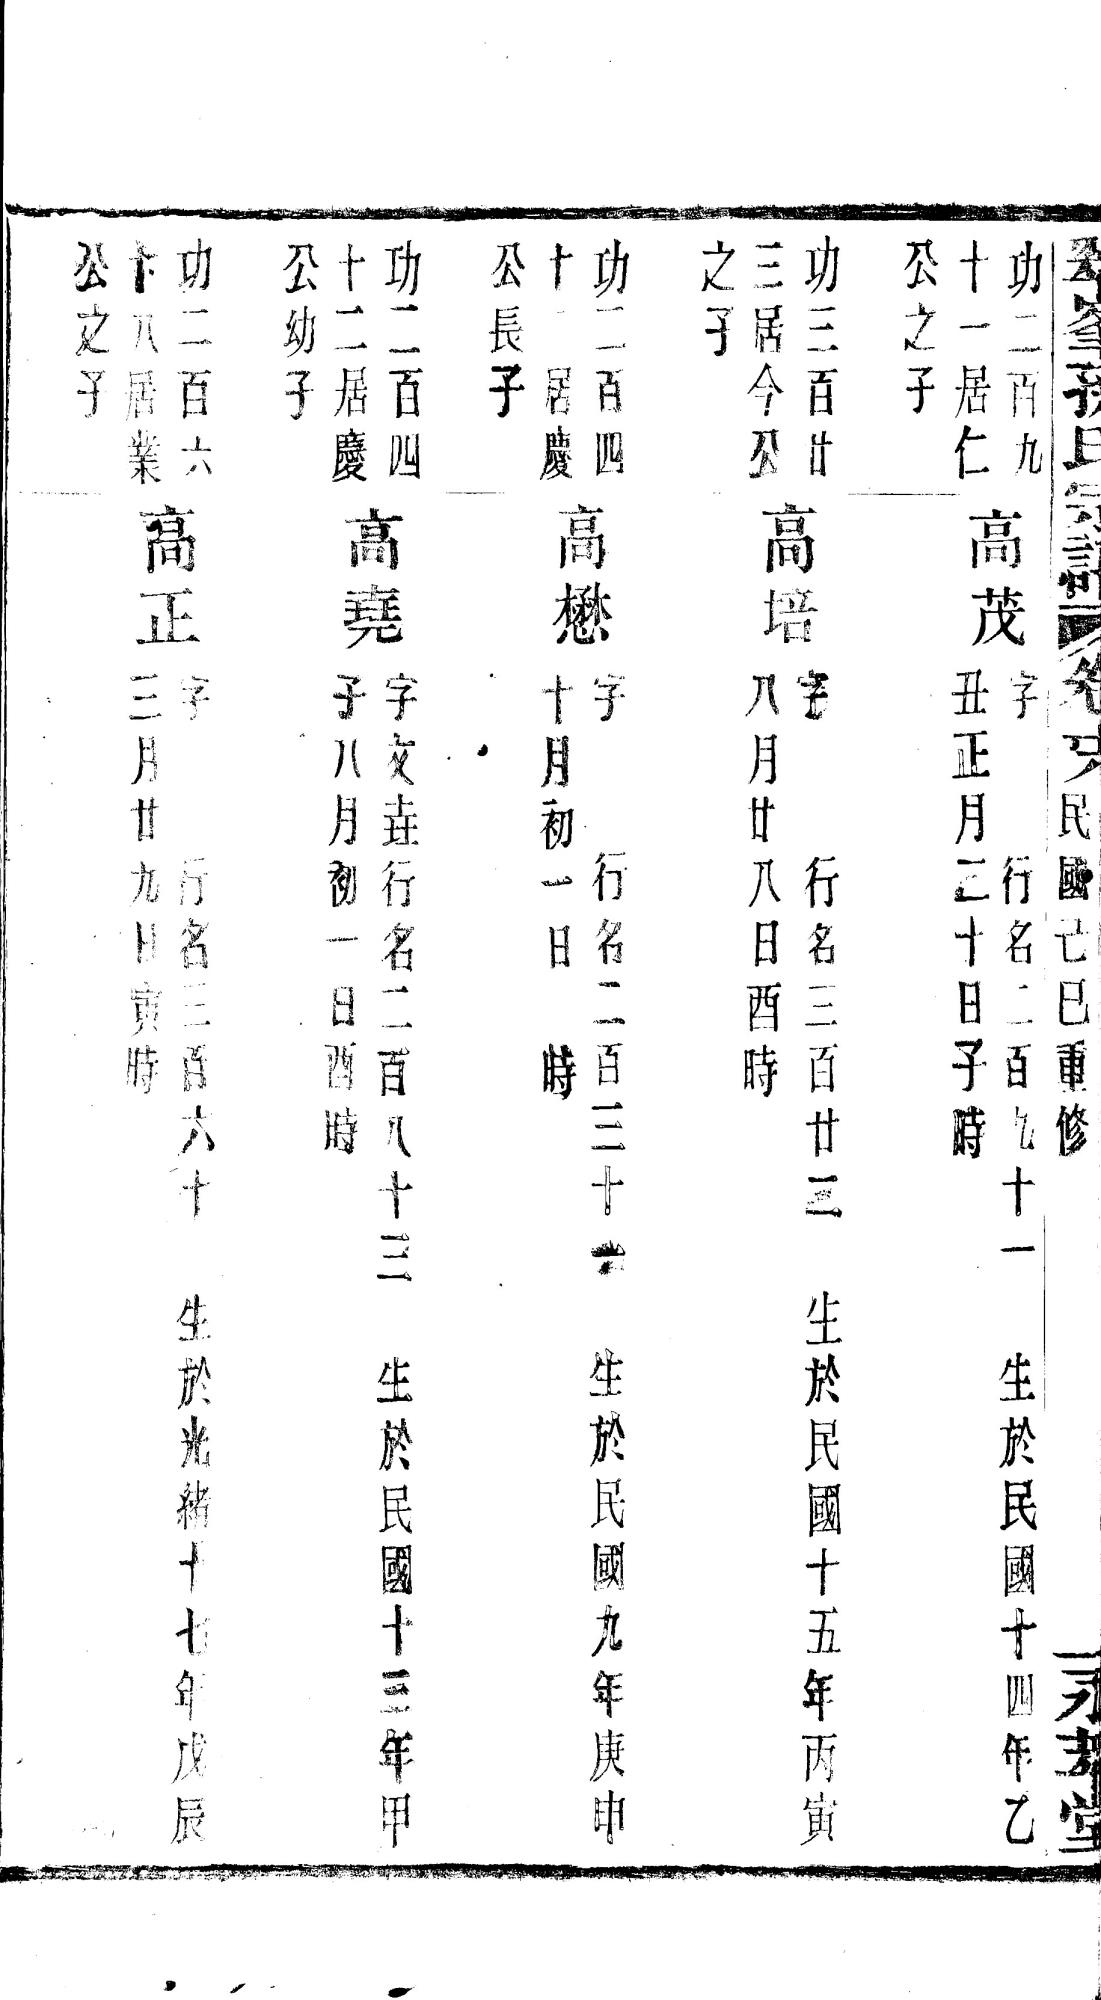 孫氏宗譜 卷 民國己巳重修 永 堂
功二百九
十一居仁
公之子
高茂
字 行名二百九十一 生於民國十四年乙
丑正月二十日子時
功三百廿
三居今公
之子
高培
字 行名三百廿三 生於民國十五年丙寅
八月廿八日酉時
功二百四
十一居慶
公長子
高懋
字 行名二百三十 生於民國九年庚申
十月初一日 時
功二百四
十二居慶
公幼子
高堯
字文垚行名二百八十三 生於民國十三年甲
子八月初一日酉時
功二百六
十八居業
公之子
高正
字 行名三百六十 生於光緒十七年戊辰
三月廿九日寅時